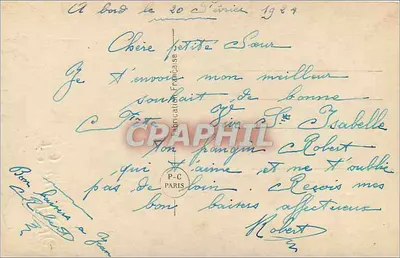 A bord le 20 Février 1924
Chère petite Sœur
Je t'envoie mon meilleur
souhait de bonne
Fête Vive Ste Isabelle
ton Robert
qui t'aime et ne t'oublie
pas de loin. Reçois mes
bon baisers affectueux
Robert
Bon baisers a Jean
Robert
Fabrication Française
P-C
PARIS
CPAPHIL